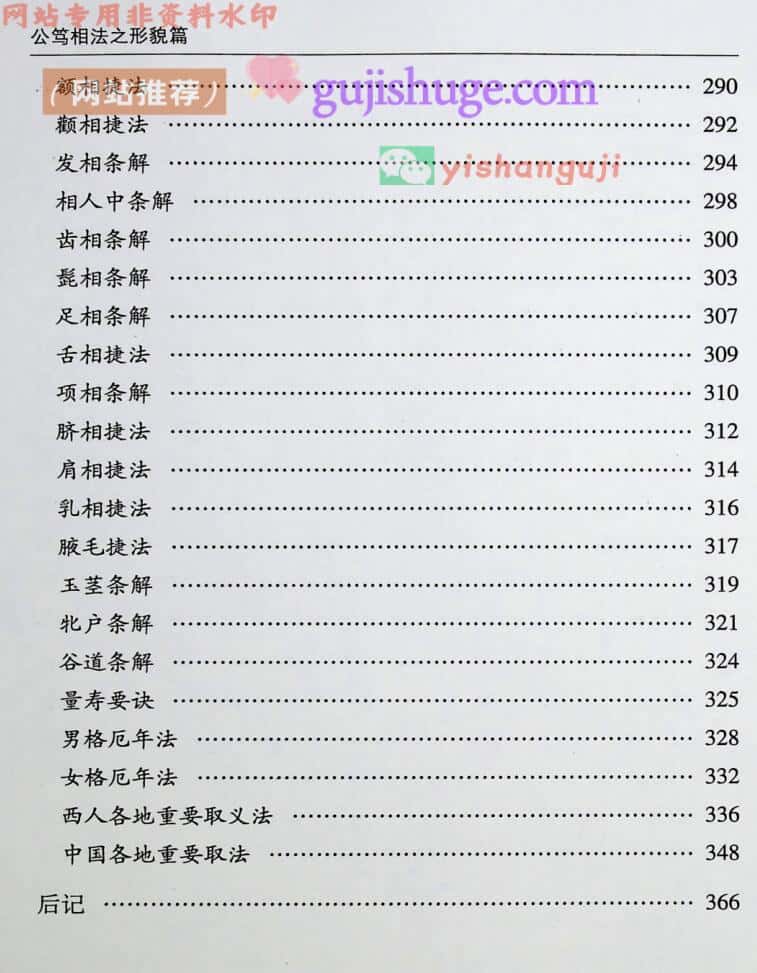 网站专用非资料水印
公笃相法之形貌篇
(网站推荐) gujishuge.com
额相捷法 290
颧相捷法 292
发相条解 294
yishanguji
相人中条解 298
齿相条解 300
髭相条解 303
足相条解 307
舌相捷法 309
项相条解 310
脐相捷法 312
肩相捷法 314
乳相捷法 316
腋毛捷法 317
玉茎条解 319
牝户条解 321
谷道条解 324
量寿要诀 325
男格厄年法 328
女格厄年法 332
西人各地重要取义法 336
中国各地重要取法 348
后记 366